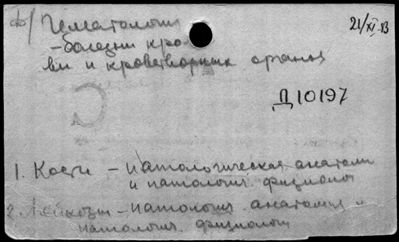 ф/ Гематология 21/XI-13
– болезни кро-
ви и кроветворных органов
Д 10197
1. Кости – патологическая анатоми
и патология. физиолог
2. Лейкозы – патология. анатомия и
патология. физиологи